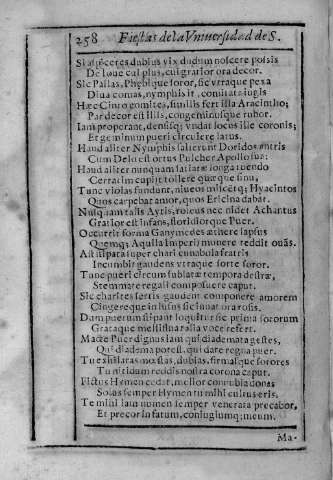 258 Fiestas de la Vniuersidad de S.
Si aspiceres dubius vix dudum noscere possis
De Ioue cul plus, cui gratior ora decor.
Sic Pallas, Phębique soror, sic vtraque pexa
Diua comas, nymphis it comitata iugis
Hæc Cinto comites, similis fert illa Aracintho;
Par decor est illis, congeminusque rubor.
Iam properant, densisq; vndat locus ille coronis;
Et geminum pueri circulere latus.
Haud aliter Nymphis salierunt Doridos antris
Cum Delo est ortus Pulcher Apollo suæ:
Haud aliter nunquam
Certatim cupit tollere quæque sinu,
Tunc violas fundunt, niueos miscētq; Hyacintos
Quos carpebat amor, quos Ericina dabat.
Nusquam talis Aytis, roleus nec nidet Achantus
Gratior est infans, floridiorque Puer.
Occurrit forma Ganymedes æthere lapsus
Quemq; Aquila Imperij munere reddit ouās.
Ast stipata super chari cunabula fratris
Incumbit gaudens vtraque forte soror.
Tunc pueri circum sublatæ tempora dextræ,
Stemmare regali composuere caput.
Sic charites sertis gaudent componere amorem
Cingereque in lusus sic iuuat ora rosis.
Dam puerum stipant loquitur sic prima sororum
Grataque mellislua talia voce refert.
Macte Puer dignus iam qui diademata gestes,
Qui diadema potest, qui dare regna puer.
Tu exhilaras mœstas, dubias, firmasque sorores
Tu nitidum reddis nostra corona caput.
Fictus Hymen cedat, melior connubia donas
Solus semper Hymen tu mihi cultus eris.
Te mihi iam nomen semper venerata precabor,
Et precor in fatum, coniugiumq; meum.
Ma-